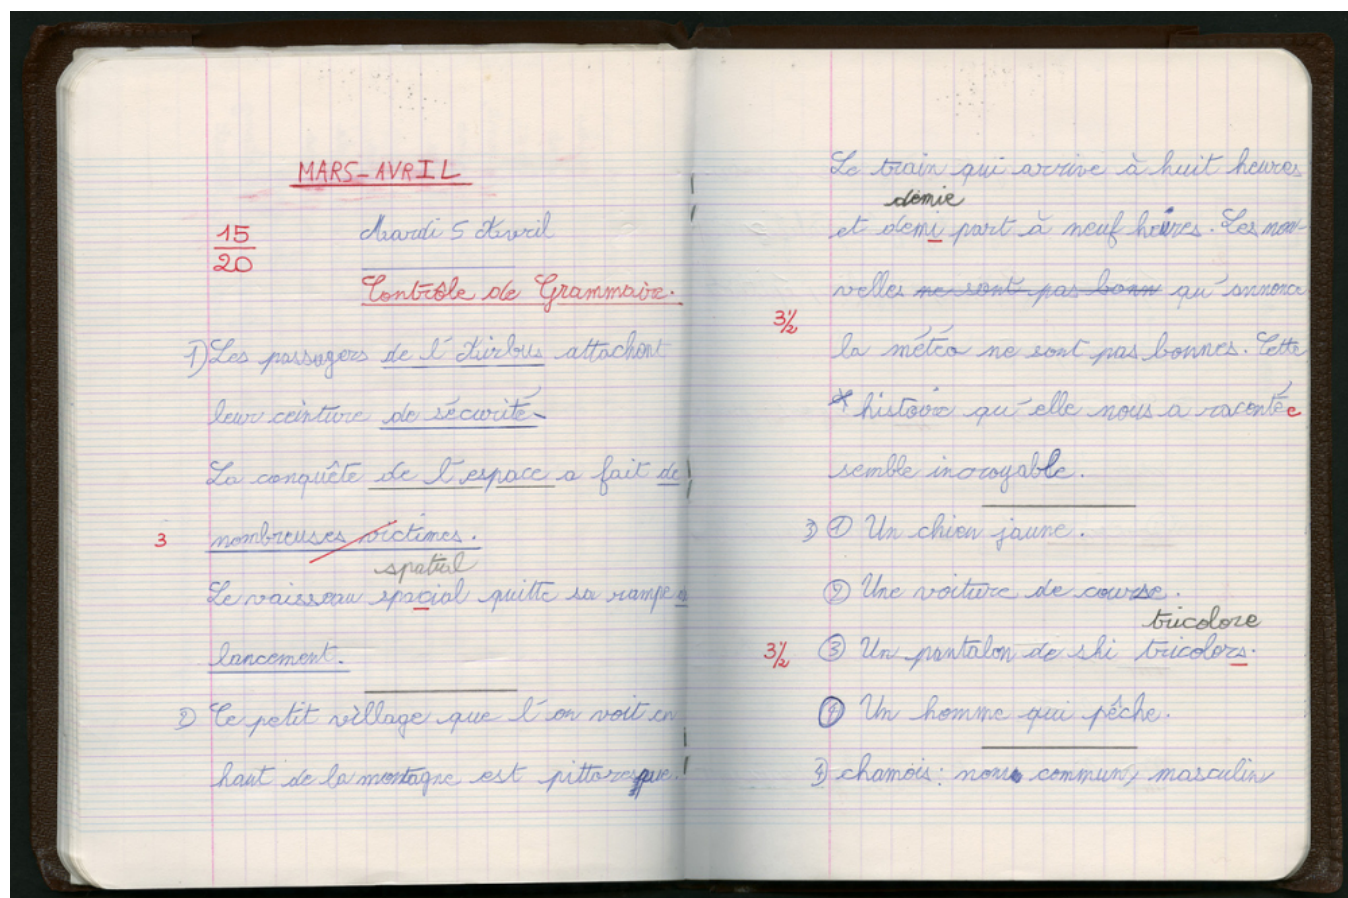 MARS-AVRIL
15
20
Mardi 5 Avril
Contrôle de Grammaire.
1) Les passagers de l'Airbus attachent
leur ceinture de sécurité
La conquête de l'espace a fait de
3 nombreuses victimes.
spatial
Le vaisseau spacial quitte sa rampe
lancement.
2) Ce petit village que l'on voit en
haut de la montagne est pittoresque.
Le train qui arrive à huit heures
demie
et demi part à neuf heures. Les nou-
velles ne sont pas bonn qu'annonce
3 1/2
la météo ne sont pas bonnes. Cette
histoire qu'elle nous a racontée
semble incroyable.
3) ① Un chien jaune.
② Une voiture de course.
tricolore
3 1/2 ③ Un pantalon de ski tricolors.
④ Un homme qui pêche.
4) chamois: nom commun, masculin